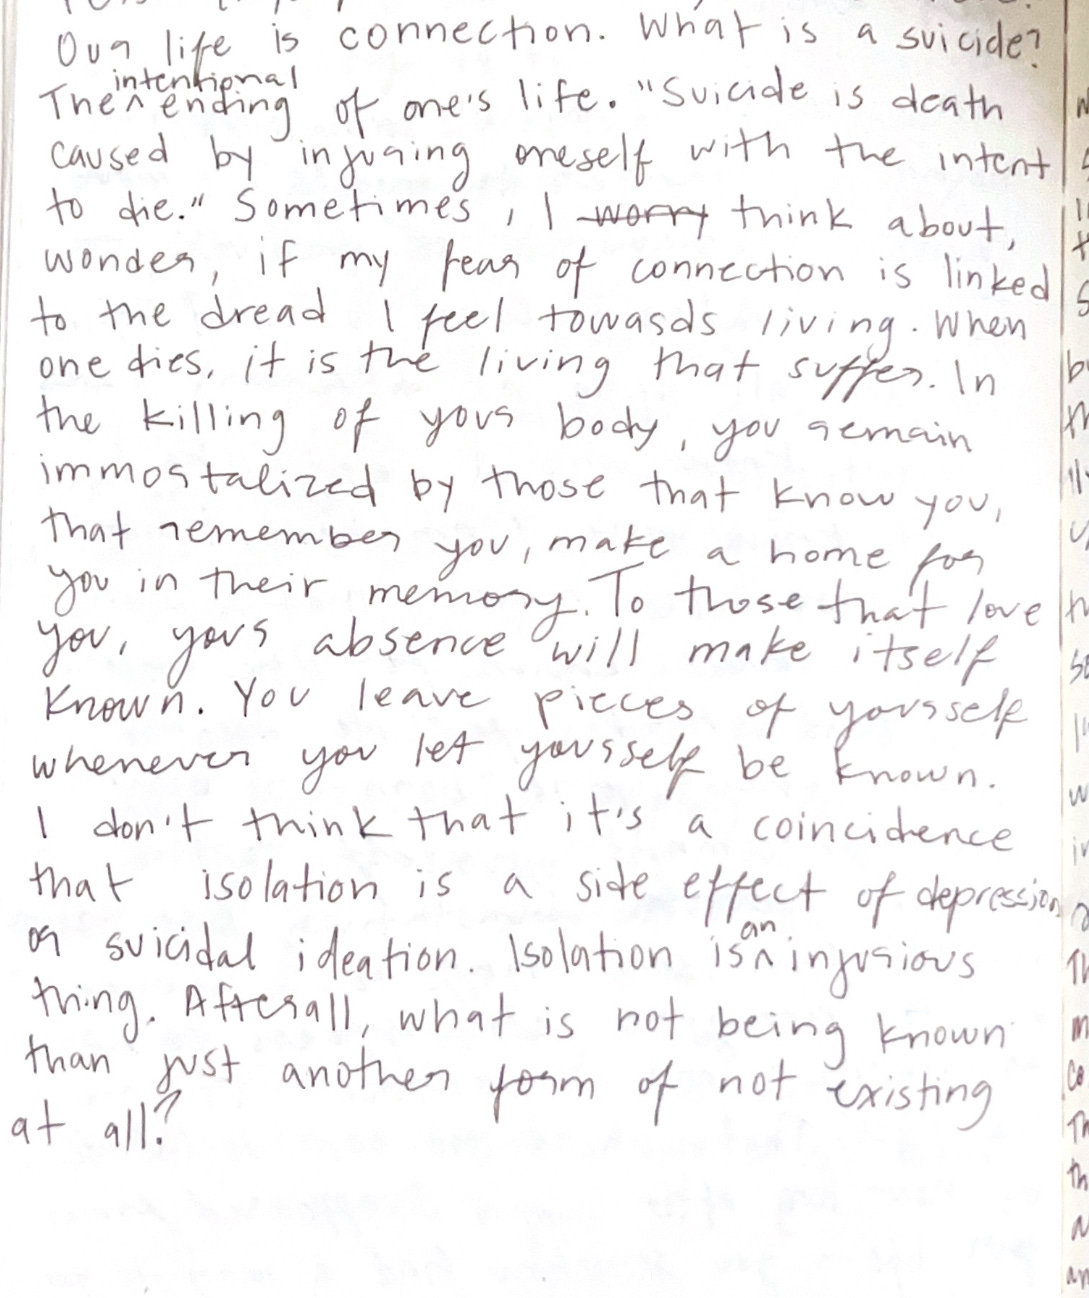 Our life is connection. What is a suicide?
intentional
The ^ ending of one's life. "Suicide is death
caused by injuring oneself with the intent
to die." Sometimes, I worry think about,
wonder, if my fear of connection is linked
to the dread I feel towards living. When
one dies, it is the living that suffer. In
the killing of your body, you remain
immortalized by those that know you,
that remember you, make a home for
you in their memory. To those that love
you, your absence will make itself
known. You leave pieces of yourself
whenever you let yourself be known.
I don't think that it's a coincidence
that isolation is a side effect of depression
or suicidal ideation. Isolation is ^an injurious
thing. Afterall, what is not being known
than just another form of not existing
at all?